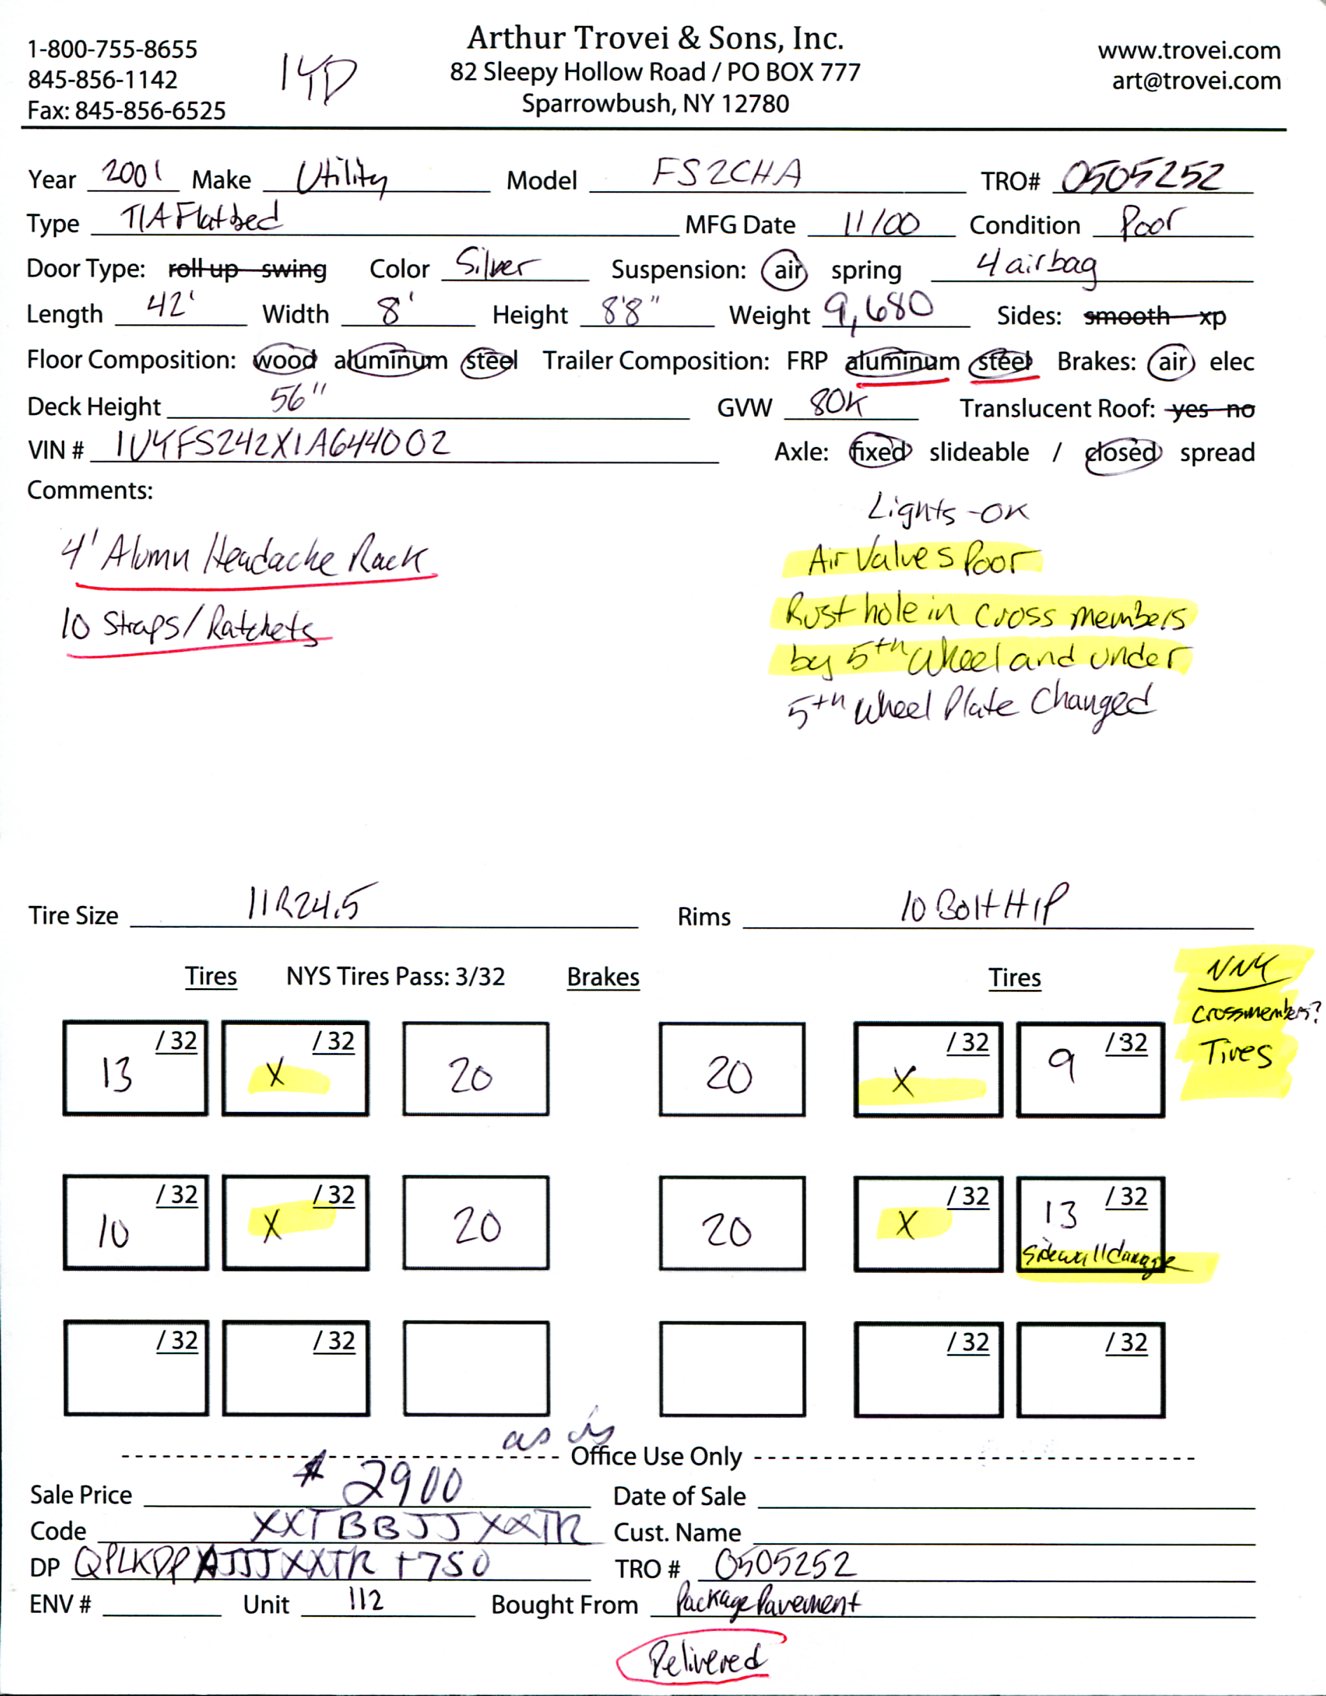 1-800-755-8655
845-856-1142
Fax: 845-856-6525
Arthur Trovei & Sons, Inc.
82 Sleepy Hollow Road / PO BOX 777
Sparrowbush, NY 12780
www.trovei.com
art@trovei.com
Year 2001 Make Utility Model FS2CHA TRO# 0505252
Type T/A Flatbed MFG Date 11/00 Condition Poor
Door Type: roll up swing Color Silver Suspension: air spring 4 airbag
Length 42' Width 8' Height 8'8" Weight 9,680 Sides: smooth xp
Floor Composition: wood aluminum steel Trailer Composition: FRP aluminum steel Brakes: air elec
Deck Height 56" GVW 80K Translucent Roof: yes no
VIN # 1UYFS242X1A644002 Axle: fixed slideable / closed spread
Comments:
4' Alumn Headache Rack
10 Straps/Ratchets
Lights - OK
Air Valves Poor
Rust hole in cross members
by 5th wheel and under
5th wheel Plate Changed
Tire Size 11R24.5 Rims 10 Bolt H/P
Tires NYS Tires Pass: 3/32 Brakes Tires
NNY
Crossmembers?
Tires
13 /32 X /32 20 20 X /32 9 /32
10 /32 X /32 20 20 X /32 13 /32
Sidewall damage
/32 /32 /32 /32
as is
Office Use Only
Sale Price $2900 Date of Sale
Code XXTBBJJXXTR Cust. Name
DP +750 TRO # 0505252
ENV # Unit 112 Bought From Package Pavement
Delivered